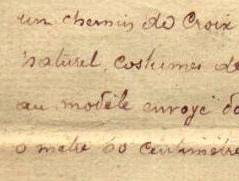 un chemin de Croix
naturel, costumes de
au modèle envoyé d
0 mètre 60 centimètre